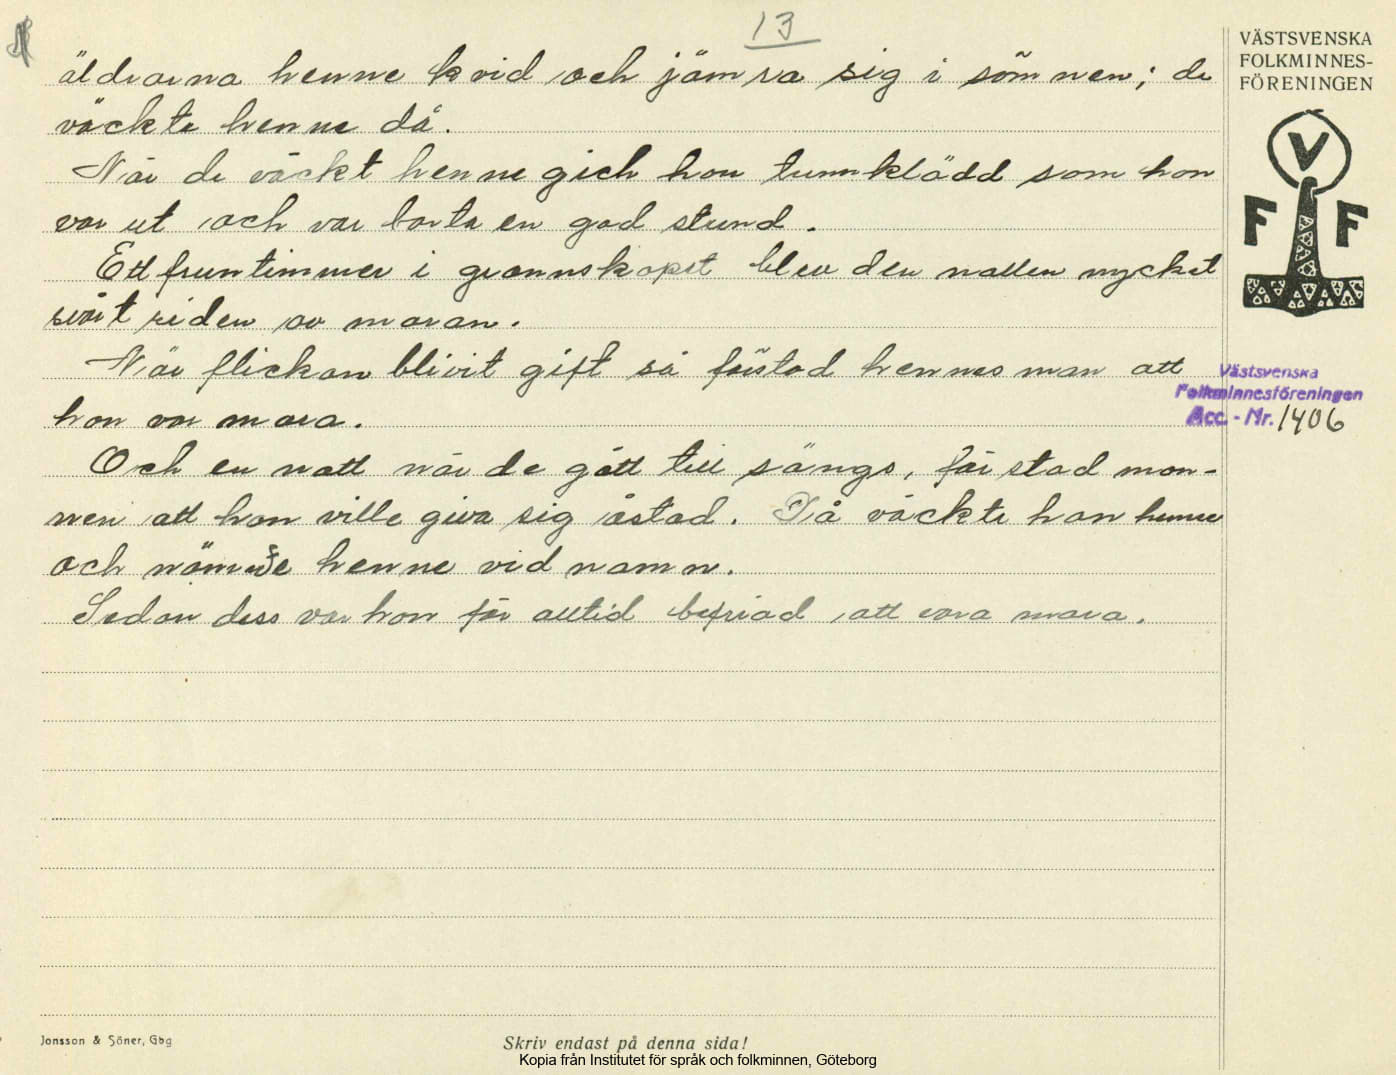 13
VÄSTSVENSKA
FOLKMINNES-
FÖRENINGEN
V
F F
äldrarna henne kvid och jämra sig i sömnen; de
väckte henne då.
När de väckt henne gick hon tunnklädd som hon
var ut och var borta en god stund.
Ett fruntimmer i grannskapet blev den natten mycket
svårt riden av maran.
När flickan blivit gift så förstod hennes man att
hon var mara.
Västsvenska
Folkminnesföreningen
Acc. - Nr. 1406
Och en natt när de gått till sängs, förstod man-
nen att hon ville giva sig åstad. Då väckte han henne
och nämnde henne vid namn.
Sedan dess var hon för alltid befriad att vara mara.
Jonsson & Söner, Gbg
Skriv endast på denna sida!
Kopia från Institutet för språk och folkminnen, Göteborg